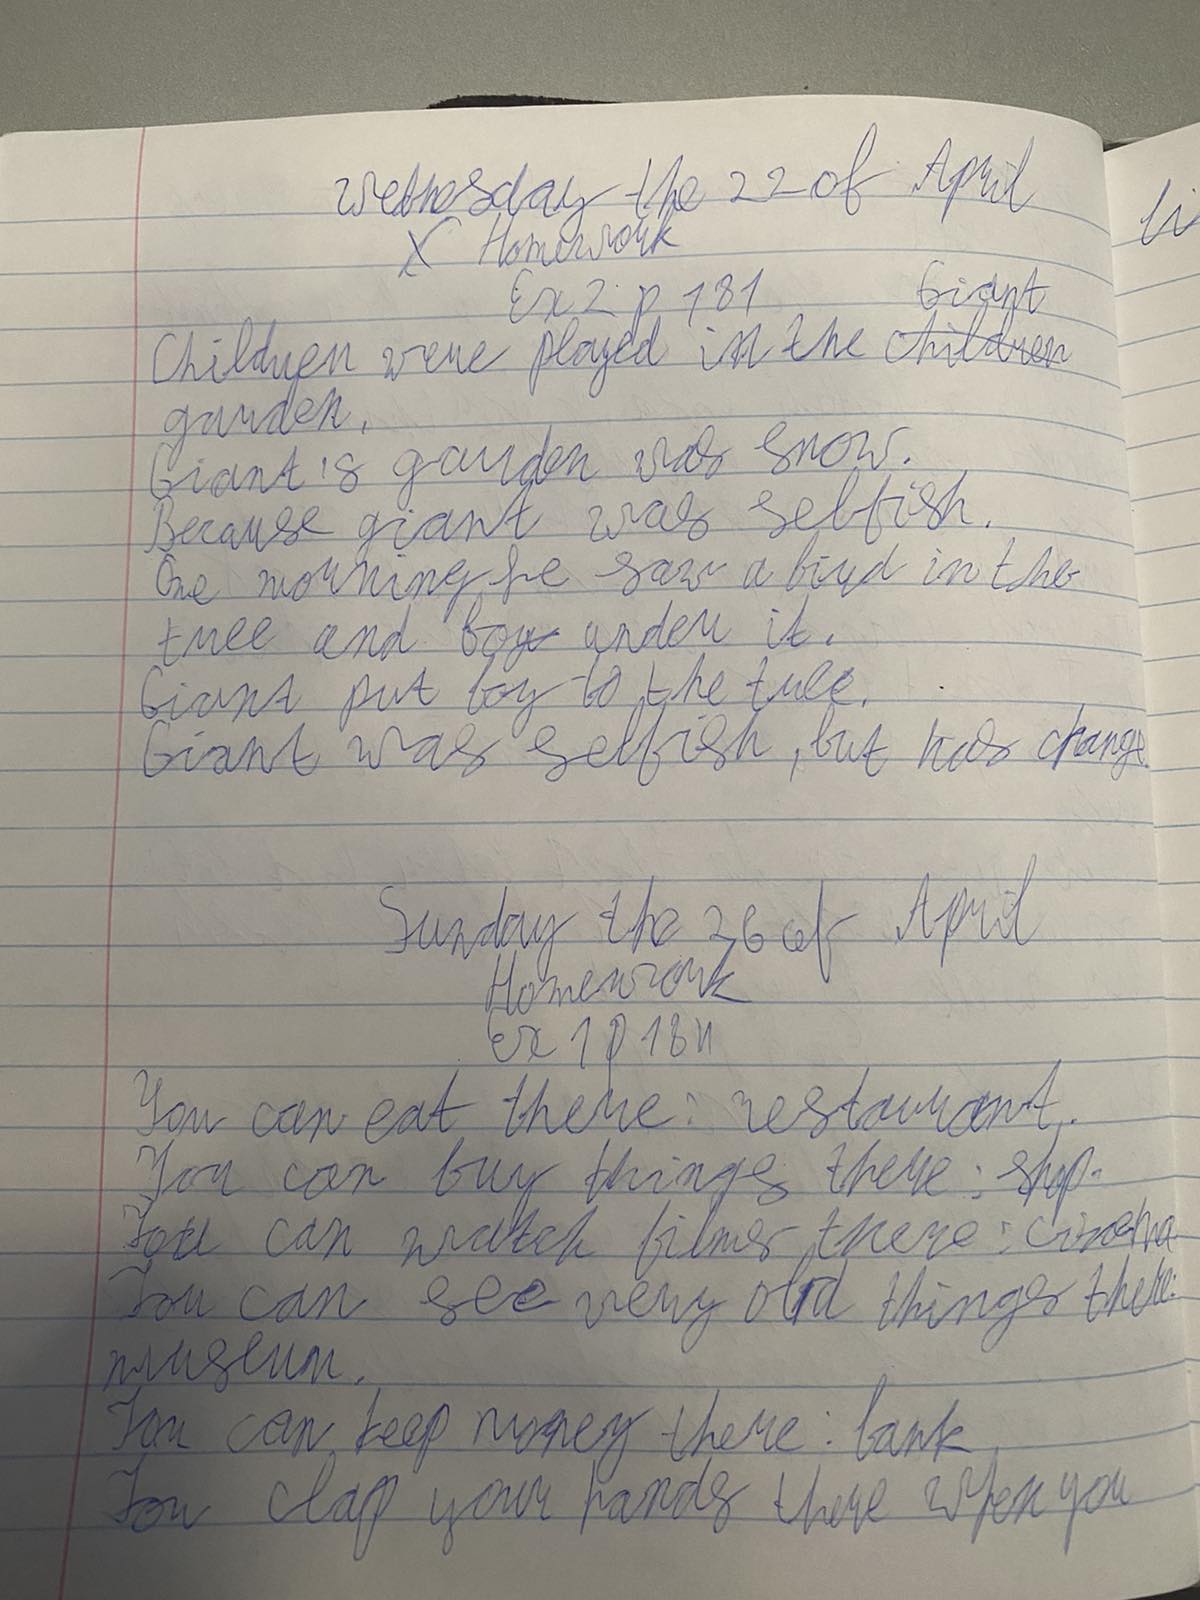 Wethesday the 22 of April
X Homework
Ex 2 p 181 Giant
Children were played in the children
garden.
Giant's garden was snow.
Because giant was selfish.
One morning he saw a bird in the
tree and boy under it.
Giant put boy to the tree.
Giant was selfish, but has change.
Sunday the 26 of April
Homework
Ex 1 p 184
You can eat there: restaurant.
You can buy things there: shop.
You can watch films there: cinema
You can see very old things there:
museum.
You can keep money there: bank
You clap your hands there when you